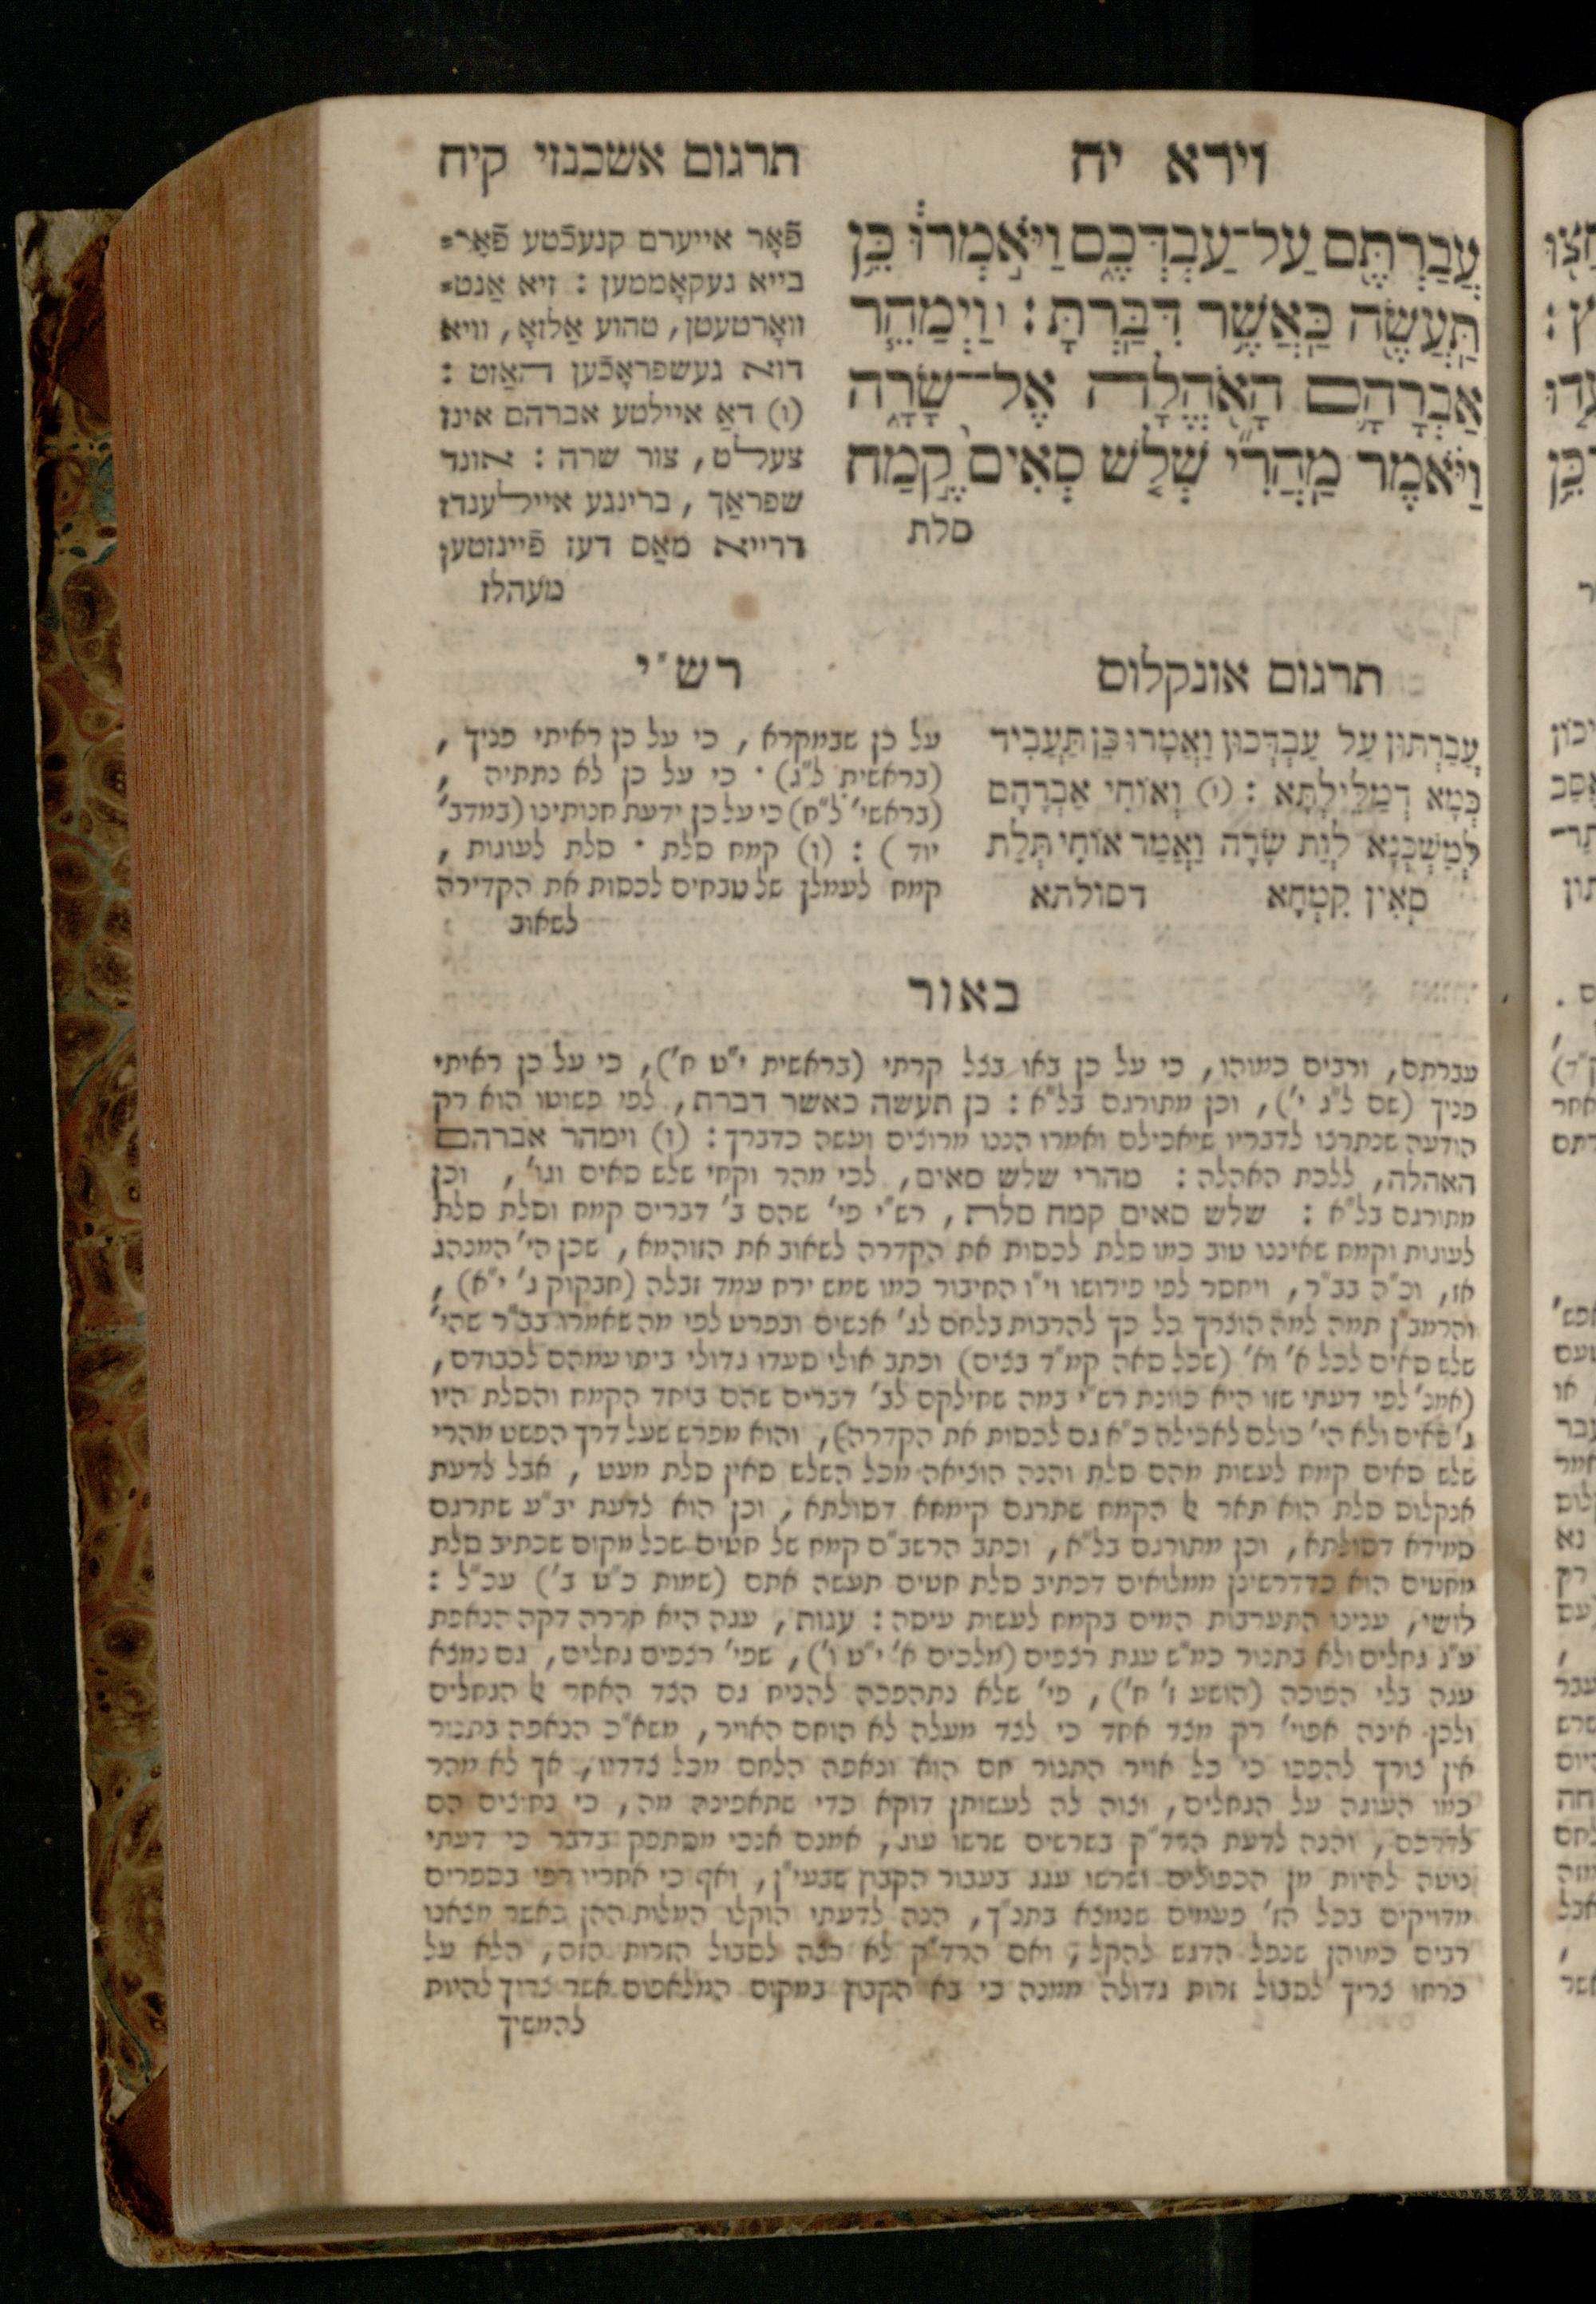 וירא יח
תרגום אשכנזי קיח
עֲבַרְתֶּ֖ם עַל־עַבְדְּכֶ֑ם וַיֹּ֣אמְר֔וּ כֵּ֥ן
תַּעֲשֶׂ֖ה כַּאֲשֶׁ֥ר דִּבַּֽרְתָּ : ו וַיְמַהֵ֧ר
אַבְרָהָ֛ם הָאֹ֖הֱלָה אֶל־שָׂרָ֑ה
וַיֹּ֗אמֶר מַהֲרִ֞י שְׁלֹ֤שׁ סְאִים֙ קֶ֣מַח
סלת
פֿאָר אייערם קנעכֿטע פֿאָר=
בייא געקאָממען : זיא אַנט=
וואָרטעטן, טהוע אַלזאָ, וויא
דוא געשפראָכֿען האַזט :
(ו) דאַ איילטע אברהם אינז
צעלט, צור שרה : אונד
שפראַך , ברינגע איילענדז
דרייא מאַס דעז פֿיינזטען
מעהלז
תרגום אונקלוס
עֲבַרְתּוּן עַל עַבְדְּכוֹן וַאֲמָרוּ כֵּן תַּעֲבֵיד
כְּמָא דְמַלֵּילְתָּא : (ו) וְאוֹחִי אַבְרָהָם
לְמַשְׁכְּנָא לְוַת שָׂרָה וַאֲמַר אוֹחִי תְּלָת
סְאִין קִמְחָא דסולתא
רש"י
על כן שבמקרא , כי על כן ראיתי פניך ,
(בראשית ל"ג) · כי על כן לא נתתיה ,
(בראשי' ל"ח) כי על כן ידעת חנותינו (במדב'
יוד ) : (ו) קמח סלת · סלת לעוגות ,
קמח לעמלן של טבחים לכסות את הקדירה
לשאוב
באור
עברתם, ורבים כמוהו, כי על כן באו בצל קרתי (בראשית י"ט ח'), כי על כן ראיתי
פניך (שם ל"ג י'), וכן מתורגם בל"א : כן תעשה כאשר דברת, לפי פשוטו הוא רק
הודעה שנתרצו לדבריו שיאכילם ואמרו הננו מרוצים ועשה כדברך : (ו) וימהר אברהם
האהלה, ללכת האהלה : מהרי שלש סאים, לכי מהר וקחי שלש סאים וגו' , וכן
מתורגם בל"א : שלש סאים קמח סלת, רש"י פי' שהם ב' דברים קמח וסלת סלת
לעוגות וקמח שאיננו טוב כמו סלת לכסות את הקדרה לשאוב את הזוהמא, שכן הי' המנהג
אז, וכ"ה בב"ר, ויחסר לפי פירושו וי"ו החיבור כמו שמש ירח עמד זבלה (חבקוק ג' י"א) ,
והרמב"ן תמה למה הוצרך כל כך להרבות בלחם לג' אנשים ובפרט לפי מה שאמרו בב"ר שהי'
שלש סאים לכל א' וא' (שכל סאה קמ"ד בצים) וכתב אולי סעדו גדולי ביתו עמהם לכבודם,
(אמנ' לפי דעתי שזו היא כוונת רש"י במה שחילקם לב' דברים שהם ביחד הקמח והסלת היו
ג' סאים ולא הי' כולם לאכילה כ"א גם לכסות את הקדרה), והוא מפרש שעל דרך הפשט מהרי
שלש סאים קמח לעשות מהם סלת והנה הוציאה מכל השלש סאין סלת מעט , אבל לדעת
אנקלוס סלת הוא תאר אל הקמח שתרגם קימחא דסולתא , וכן הוא לדעת יב"ע שתרגם
סמידא דסולתא, וכן מתורגם בל"א, וכתב הרשב"ם קמח של חטים שכל מקום שכתיב סלת
מחטים הוא כדדרשינן ממלואים דכתיב סלת חטים תעשה אתם (שמות כ"ט ב') עכ"ל :
לושי, ענינו התערבות המים בקמח לעשות עיסה : עגות, עגה היא חררה דקה הנאפת
ע"ג גחלים ולא בתנור כמ"ש עגת רצפים (מלכים א' י"ט ו'), שפי' רצפים גחלים, גם נמצא
עגה בלי הפוכה (הושע ז' ח'), פי' שלא נתהפכה להניח גם הצד האחר אל הגחלים
ולכן אינה אפוי' רק מצד אחד כי לצד מעלה לא הוחם האויר, משא"כ הנאפה בתנור
אין צורך להפכו כי כל אויר התנור חם הוא ונאפה הלחם מכל צדדיו, אך לא מהר
כמו העוגה על הגחלים, וצוה לה לעשותן דוקא כדי שתאפינה מה, כי נחוצים הם
לדרכם, והנה לדעת הרד"ק בשרשים שרשו עוג, אמנם אנכי מסתפק בדבר כי דעתי
נוטה להיות מן הכפולים ושרשו עגג בעבור הקבוץ שבעי"ן, ואף כי אחריו רפי בספרים
מדויקים בכל הז' פעמים שנמצא בתנ"ך, הנה לדעתי הוקלו המלות ההן כאשר מצאנו
רבים כמוהן שנפל הדגש להקל, ואם הרד"ק לא רצה לסבול הזרות הזה, הלא על
כרחו צריך לסבול זרות גדולה ממנה כי בא הקבוץ במקום המלאפום אשר צריך להיות
להמשיך